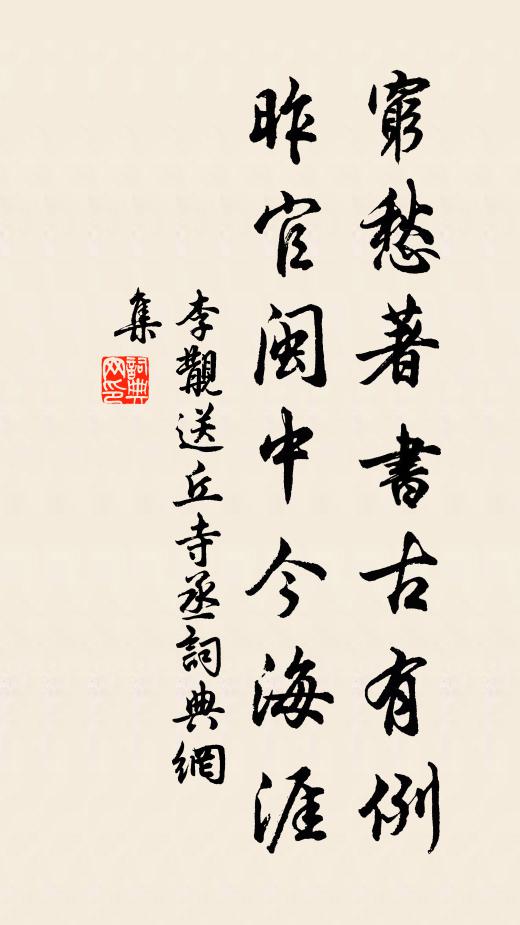 窮愁著書古有例
昨官閩中今海涯
李覯送丘寺丞詞典網
集
詞典
网印